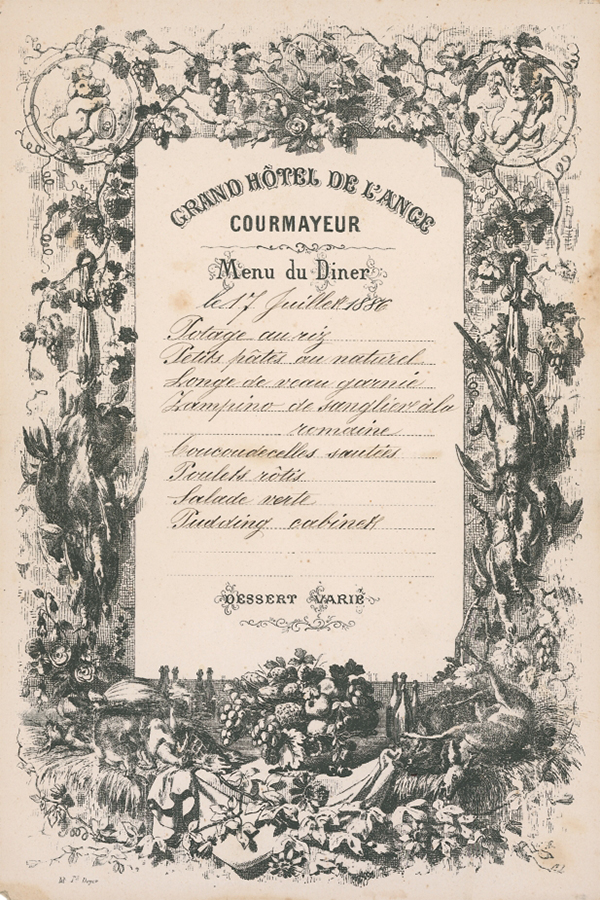 GRAND HÔTEL DE L'ANGE
COURMAYEUR
Menu du Diner
le 17 Juillet 1886
Potage au riz
Petits pâtés au naturel
Longe de veau garnie
Zampino de sanglier à la
romaine
Coucoudecelles sautées
Poulets rôtis
Salade verte
Pudding cabinet
DESSERT VARIÉ